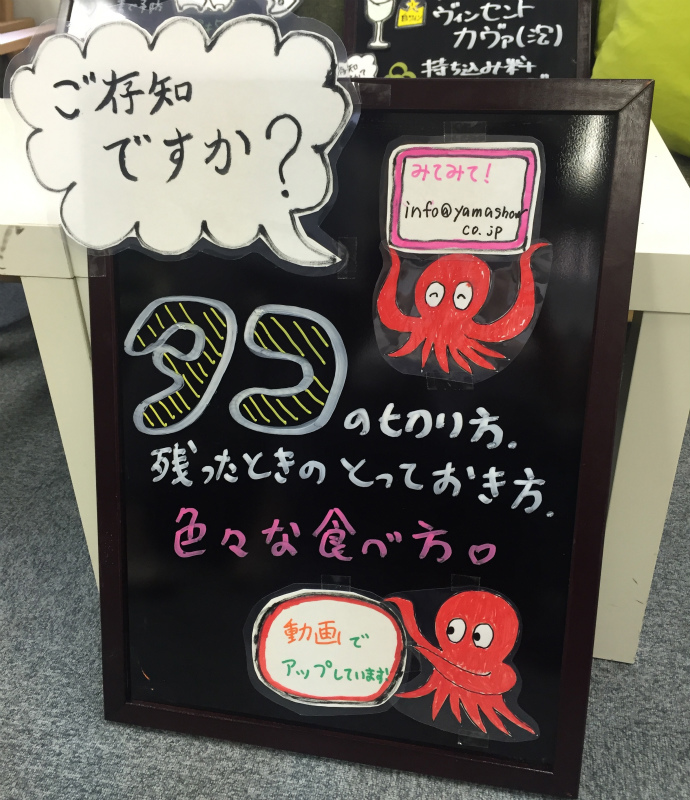 ヴィンセント
カヴァ(泡)
持ち込み料
ご存知
ですか?
みてみて!
info@yamashow
co.jp
タコの切り方.
残ったときのとっておき方.
色々な食べ方。
動画で
アップしています!